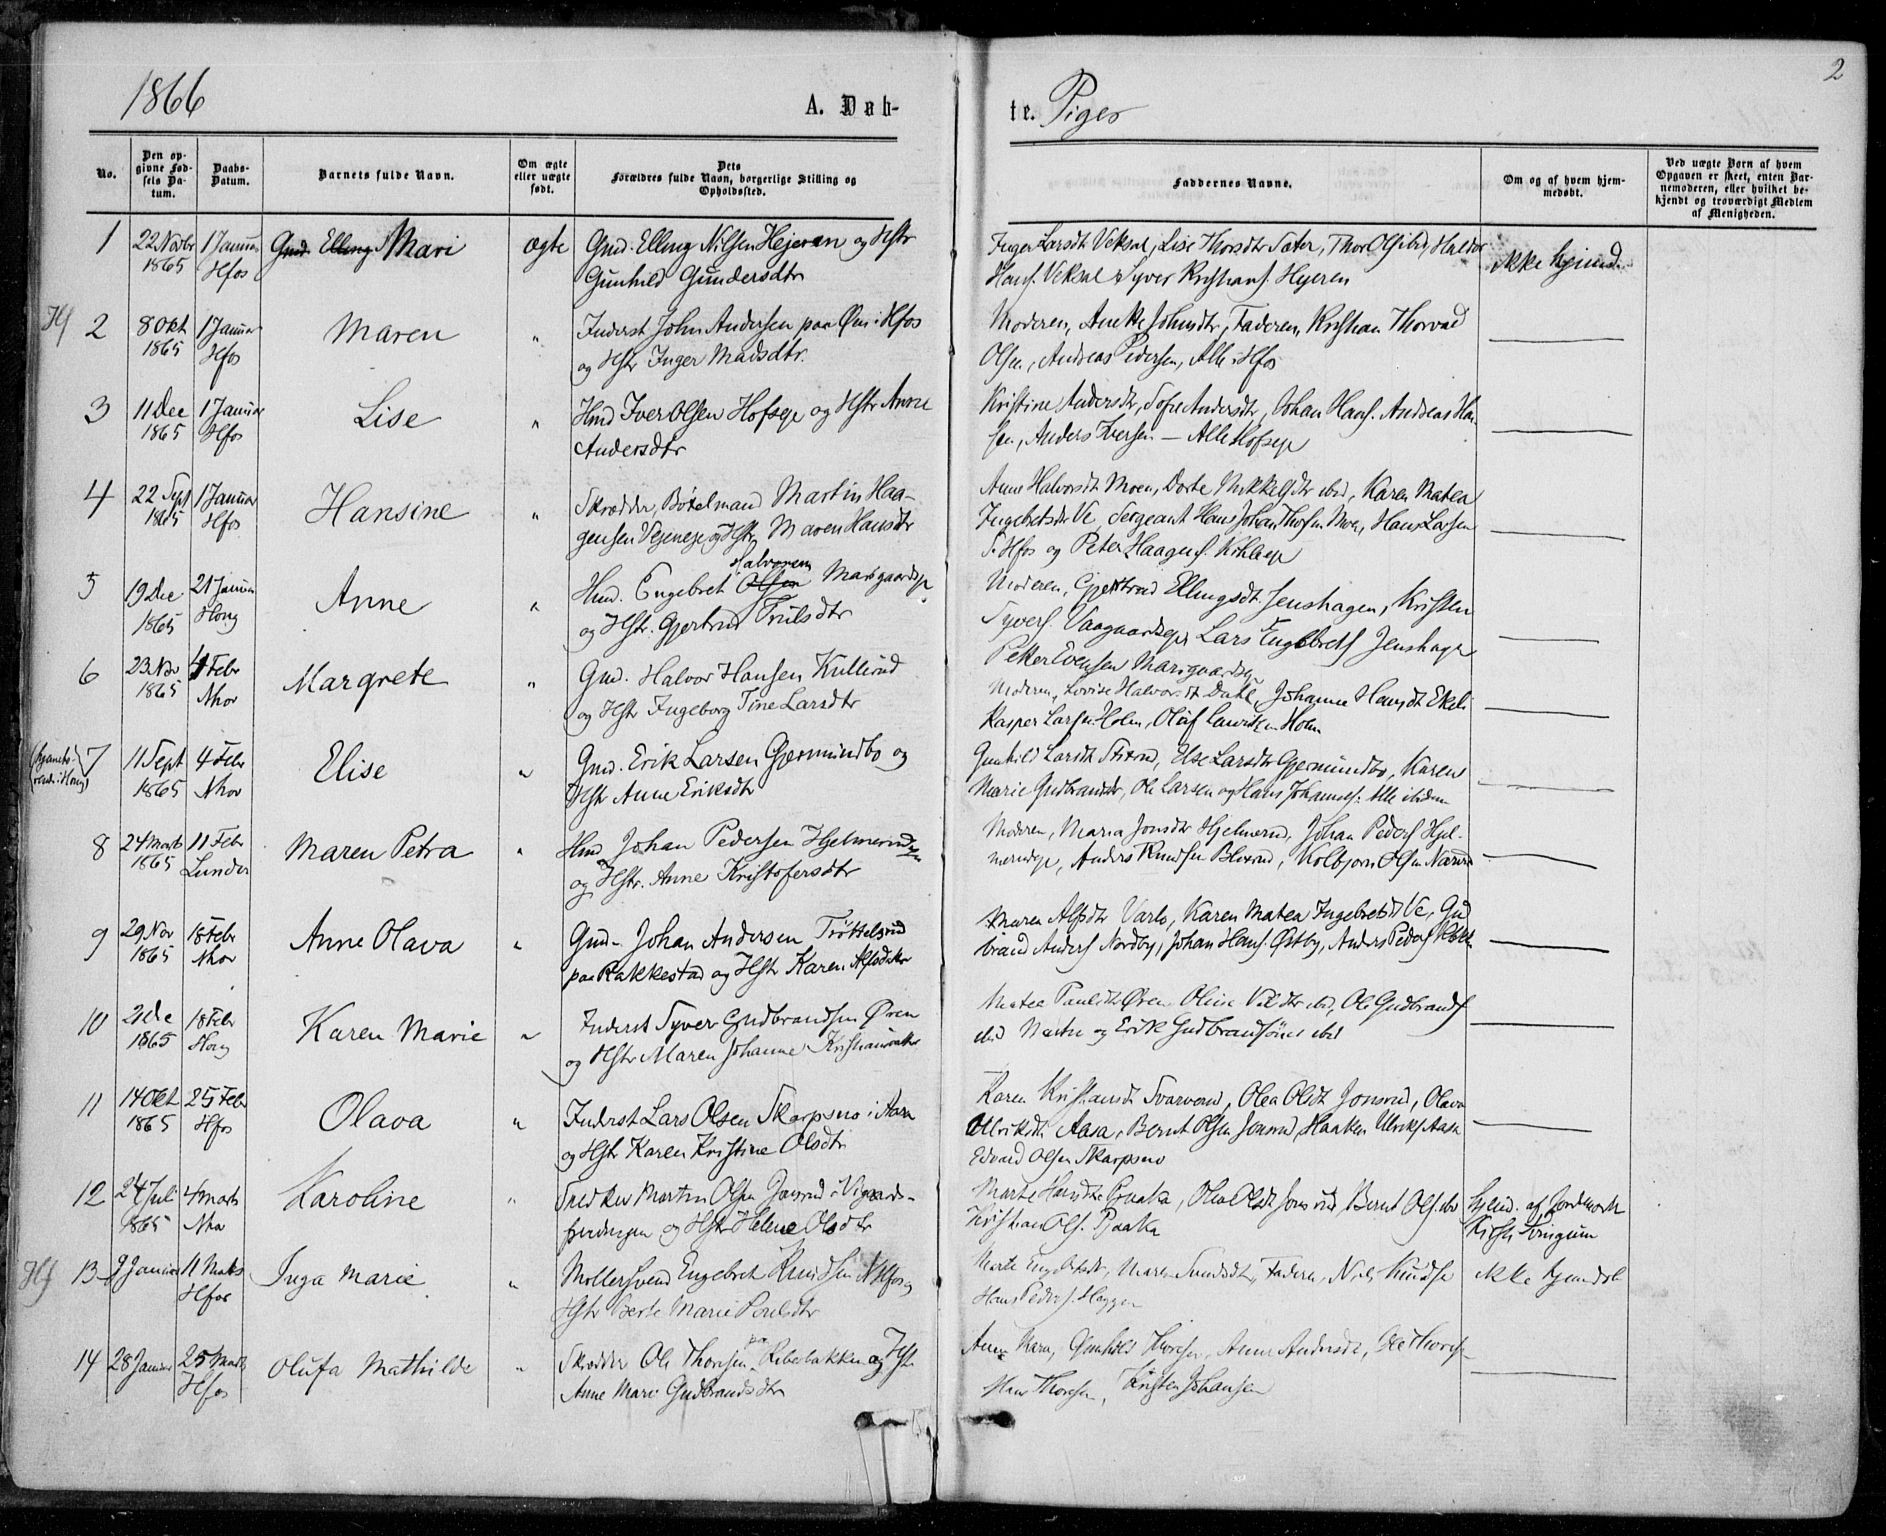 1866
A. Døb-
te. Piger
2
No.
Den op-
givne Fød-
sels Da-
tum.
Daabs-
Datum.
Barnets fulde Navn.
Om ægte
eller uægte
født.
Dets
Forældres fulde Navn, borgerlige Stilling og
Opholdssted.
Faddernes Navne.
Om og af hvem hjem-
medøbt.
Ved uægte Børn af hvem
Opgaven er skeet, enten Bar-
nemoderen, eller hvilket be-
kjendt og troværdigt Medlem
af Menigheden.
1
22 Novbr
1865
1 Januar
Hfos
Gmd. Elling Mari
ægte
Gmd. Elling Nilsen Hejeren og Hstr
Gunhild Gundersdtr
Inger Larsdt Veksal, Lise Thorsdtr Sæter, Thor Olsen ibid, Haldor
Hans. Veksal Syver Kristians. Hejeren
ikke hjemd.
Hf
2
8 Okt
1865
1 Januar
Hfos
Maren
"
Inderst John Andersen paa Øen i Hfos
og Hstr Inger Madsdtr.
Moderen, Anette Johnsdtr, Faderen, Kristian Thorvald
Olsen, Andreas Pedersen, Alle i Hfos
3
11 Dec
1865
1 Januar
Hfos
Lise
"
Hmd Iver Olsen Hofseje og Hstr Anne
Andersdtr
Kristine Andersdtr, Sofie Andersdtr, Johan Hans. Andreas Han-
sen, Anders Iversen — Alle Hofseje
4
22 Sept
1865
1 Januar
Hfos
Hansine
"
Skrædder, Bøtelmand Martin Haa-
gensen Vejeneje og Hstr Maren Hansdtr
Anne Halvorsdt Moen, Dorte Mikkelsdtr ibid, Karen Matea
Ingebretsdtr Ve, Sergeant Hans Johan Thofsen Moen, Hans Larsen
S. Hfos og Peter Haagens.
5
19 Dec
1865
21 Januar
Hong
Anne
"
Halvorsen
Hmd. Engebret Olsen Marigaardseje
og Hstr. Gjertrud Trulsdtr
Moderen, Gjertrud Ellingsdt. Jenshagen, Kristen
Syvers. Vaagaardseje Lars Engebrets Jenshage
Peter Evensen Marigaardseje
6
23 Nov
1865
4 Febr
Nhov
Margrete
"
Gmd. Halvor Hansen Kullerud
og Hstr Ingeborg Tine Larsdtr
Moderen, Lovise Halvorsdt Dahl, Johanne Hansdt Ekeli
Kasper Larsen Holm, Oluf Lauritzen Holm
7
11 Sept
1865
4 Febr
Nhov
Elise
"
Gmd. Erik Larsen Gjermundbo og
Hstr Anne Eriksdtr
Gunhild Larsdt Strand, Else Larsdt Gjermundbo, Karen
Marie Gudbrandsdtr, Ole Larsen og Hans Johannes. Alle ibidem
8
24 Marts
1865
11 Febr
Lunder
Maren Petra
"
Hmd Johan Pedersen Hjelmerudeje
og Hstr. Anne Kristofersdtr
Moderen, Maria Jonsdtr Hjelmerud, Johan Peders Hjel-
merudeje, Anders Knudsen Bleserud, Kolbjørn Olsen
9
29 Nov
1865
18 Febr
Nhov
Anne Olava
"
Gmd. Johan Andersen Trøttelsrud
paa Rakkestad og Hstr Karen Alfsdatter
Maren Alfsdtr Varlo, Karen Matea Ingebretsdt Ve, Gud
brand Anders Nordby, Johan Hans Østby, Anders Peders
10
2 Dec
1865
18 Febr
Hong
Karen Marie
"
Inderst Syver Gudbrandsen Øren
og Hstr Maren Johanne Kristiansdatter
Matea Paulsdt Øren Oline ibid, Ole Gudbrands
ibid og Erik Gudbrandsøns ibid
11
14 Okt
1865
25 Febr
Hfos
Olava
"
Inderst Lars Olsen Skarpsno i Aasa
og Hstr Karen Kristine Olsdtr
Karen Kristiansdt Svarverud, Olea Olsdt Jonsrud, Olava
Ulriksdtr Aasa, Bernt Olsen Jonsrud, Haaken Ulriks Aasa
Edvard Olsen Skarpsno
12
24 Juli
1865
4 Marts
Nho
Karoline
"
Snedker Martin Olsen i Vigaards-
og Hstr Helene Olsdtr
Marte Hansdtr Pjaaka, Olea Olsdt Jonsrud Bernt Ols. ibd
Kristian Ols. Pjaaka
hjemd. af Jordemoder
13
9 Januar
11 Marts
Hfos
Hf
Inga Marie
"
Møllersvend Engebret Knudsen N Hfos og
Hstr Berte Marie Poulsdtr
Marte Engebretsdtr, Maren, Faderen, Nils Knudsen
Hans Peders. Haggen
ikke hjemdøb
14
28 Januar
25 Marts
Hfos
Olufa Mathilde
"
Skrædder Ole Thoresen paa Ribebakken og Hstr
Anne Mari Gudbrandsdtr
Anne Maria, Gunhild Thoresen, Anne Andersdt, Ole Thoresen
Hans Thoresen, Kristen Johansen